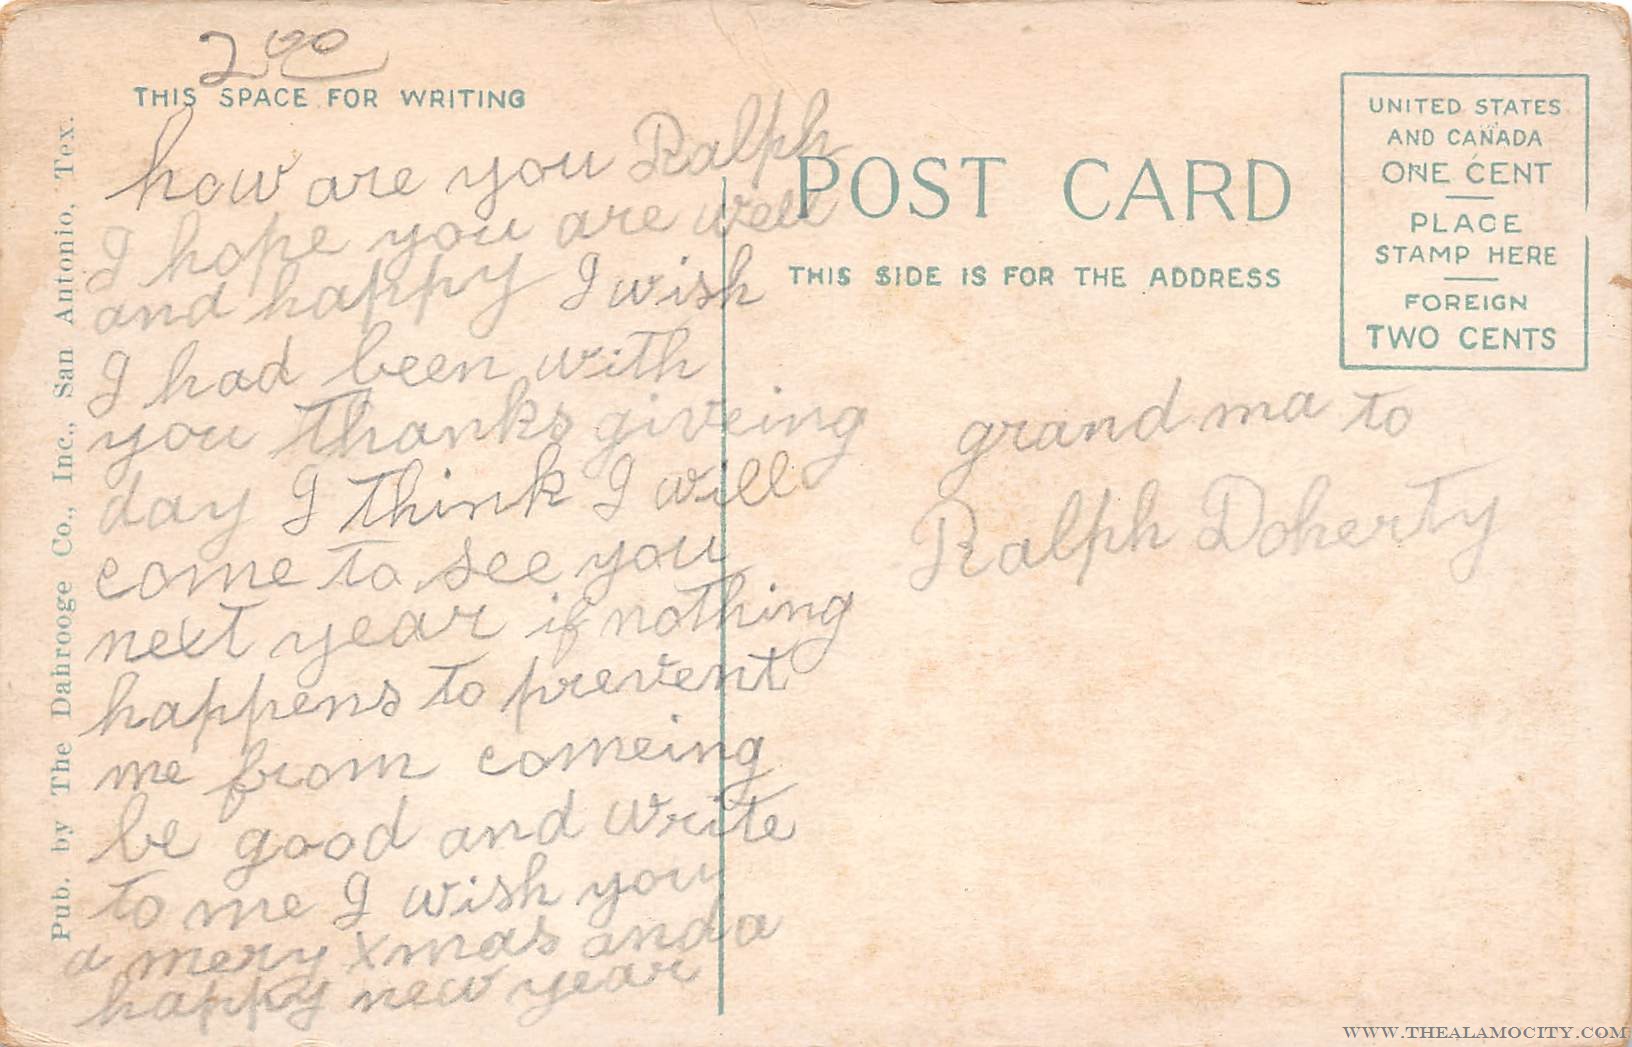 2 00
THIS SPACE FOR WRITING
how are you Ralph
I hope you are well
and happy I wish
I had been with
you thanks giveing
day I think I will
come to see you
next year if nothing
happens to prevent
me from comeing
be good and write
to me I wish you
a mery xmas and a
happy new year
Pub. by The Dahrooge Co., Inc., San Antonio, Tex.
POST CARD
THIS SIDE IS FOR THE ADDRESS
UNITED STATES
AND CANADA
ONE CENT
PLACE
STAMP HERE
FOREIGN
TWO CENTS
grand ma to
Ralph Doherty
WWW.THEALAMOCITY.COM